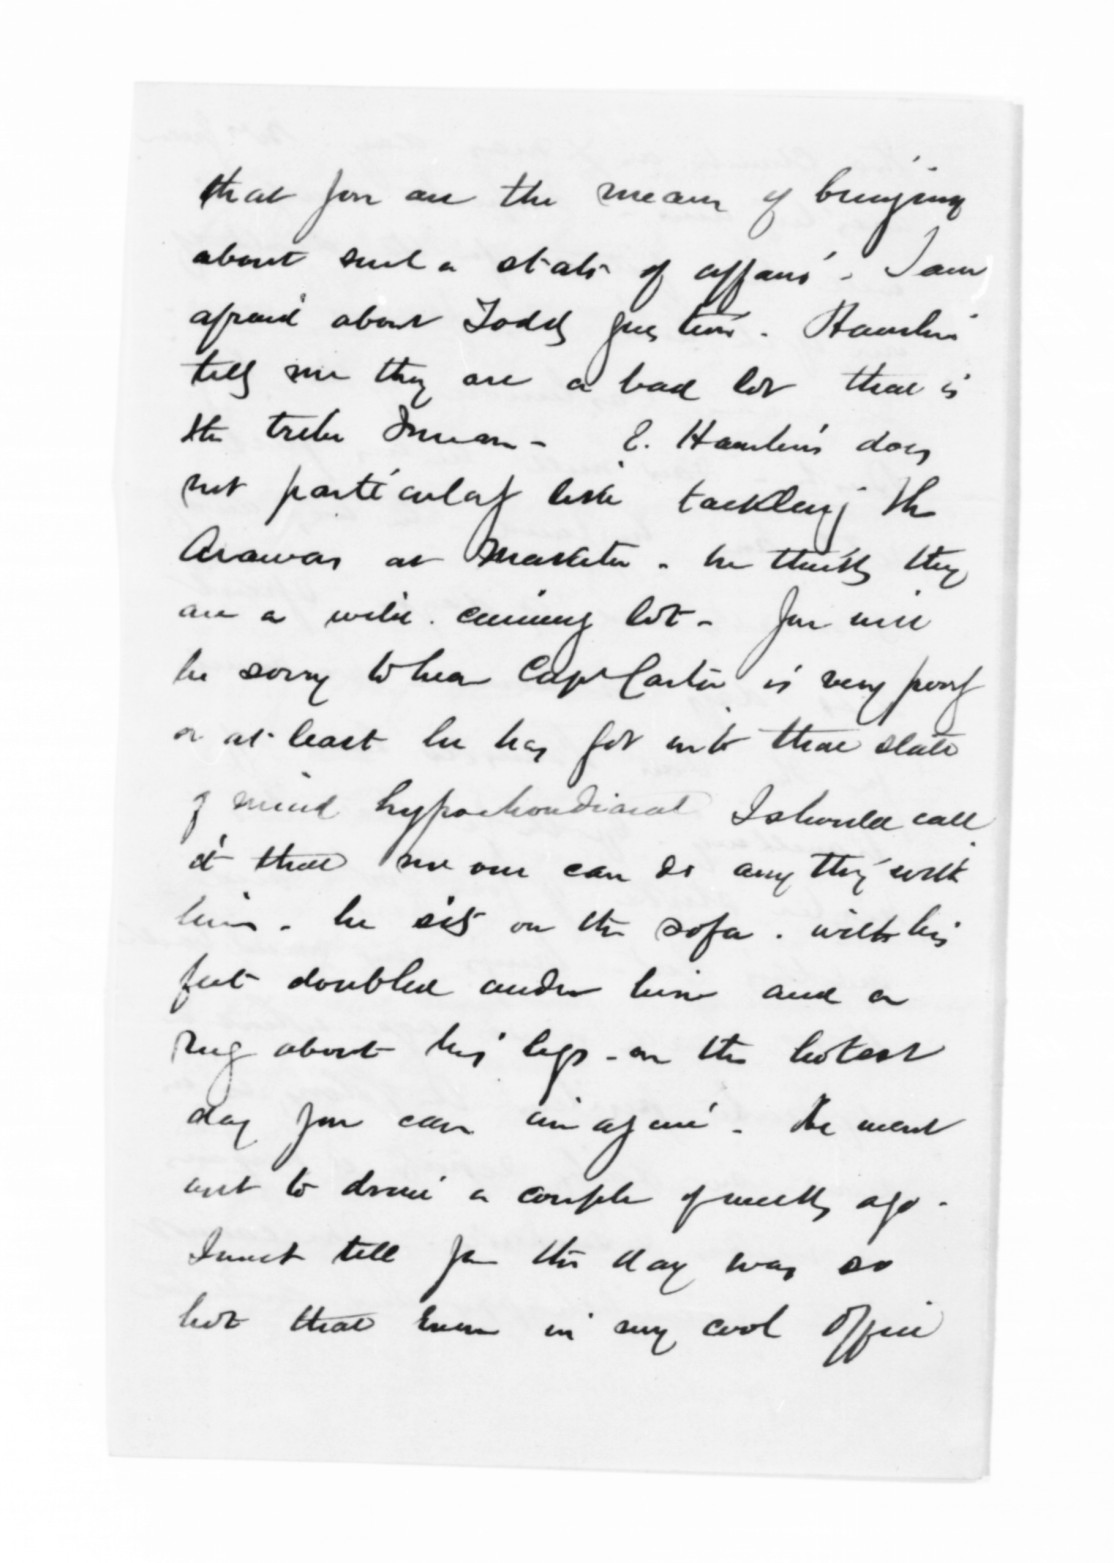 that you are the means of bringing
about such a state of affairs. I am
afraid about Todds question. Hamlin
tells me they are a bad lot that is
the tribe I mean - E. Hamlin does
not particularly like tackling the
Arawas at Maketu. he thinks they
are a wild. cunning lot - You will
be sorry to hear Capt Carter is very poorly
or at least he has got into that state
of mind hypochondriacal I should call
it that no one can do any thing with
him. he sits on the sofa. with his
feet doubled under him and a
rug about his legs - on the hotest
day you can imagine. He went
out to drive a couple of weeks ago.
I must tell you the day was so
hot that even in my cool office